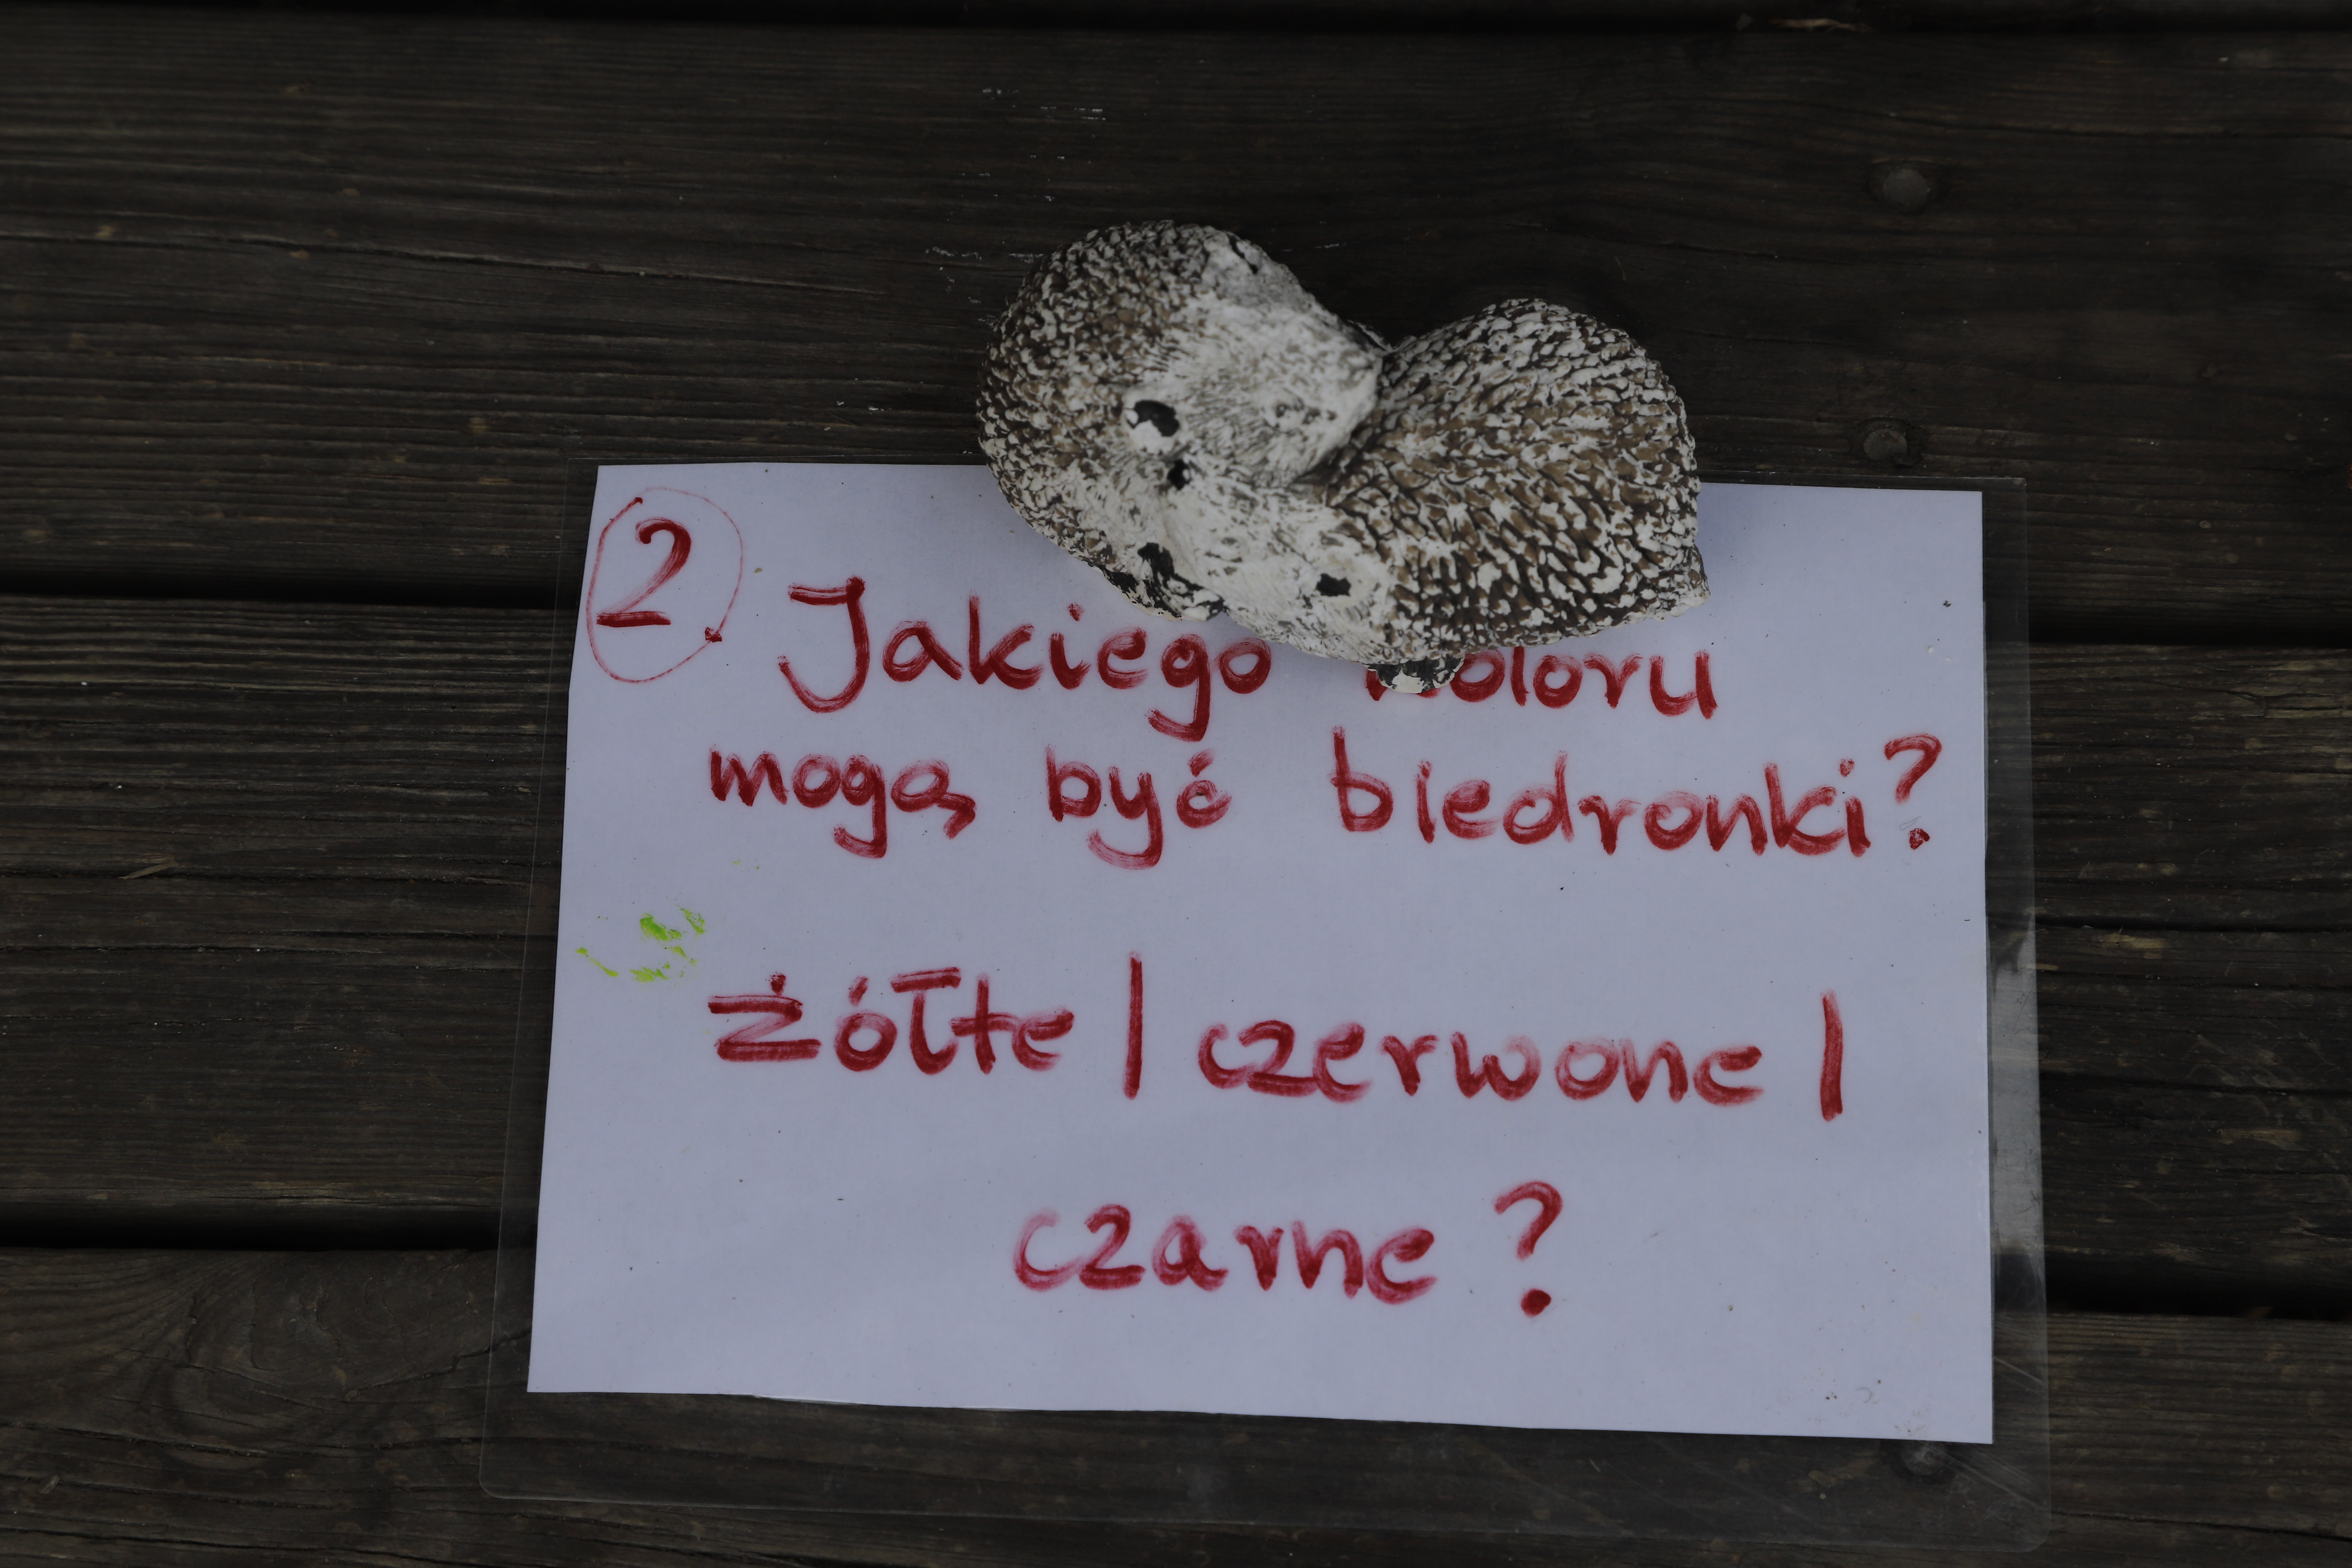 2. Jakiego koloru
mogą być biedronki?
żółte | czerwone |
czarne?